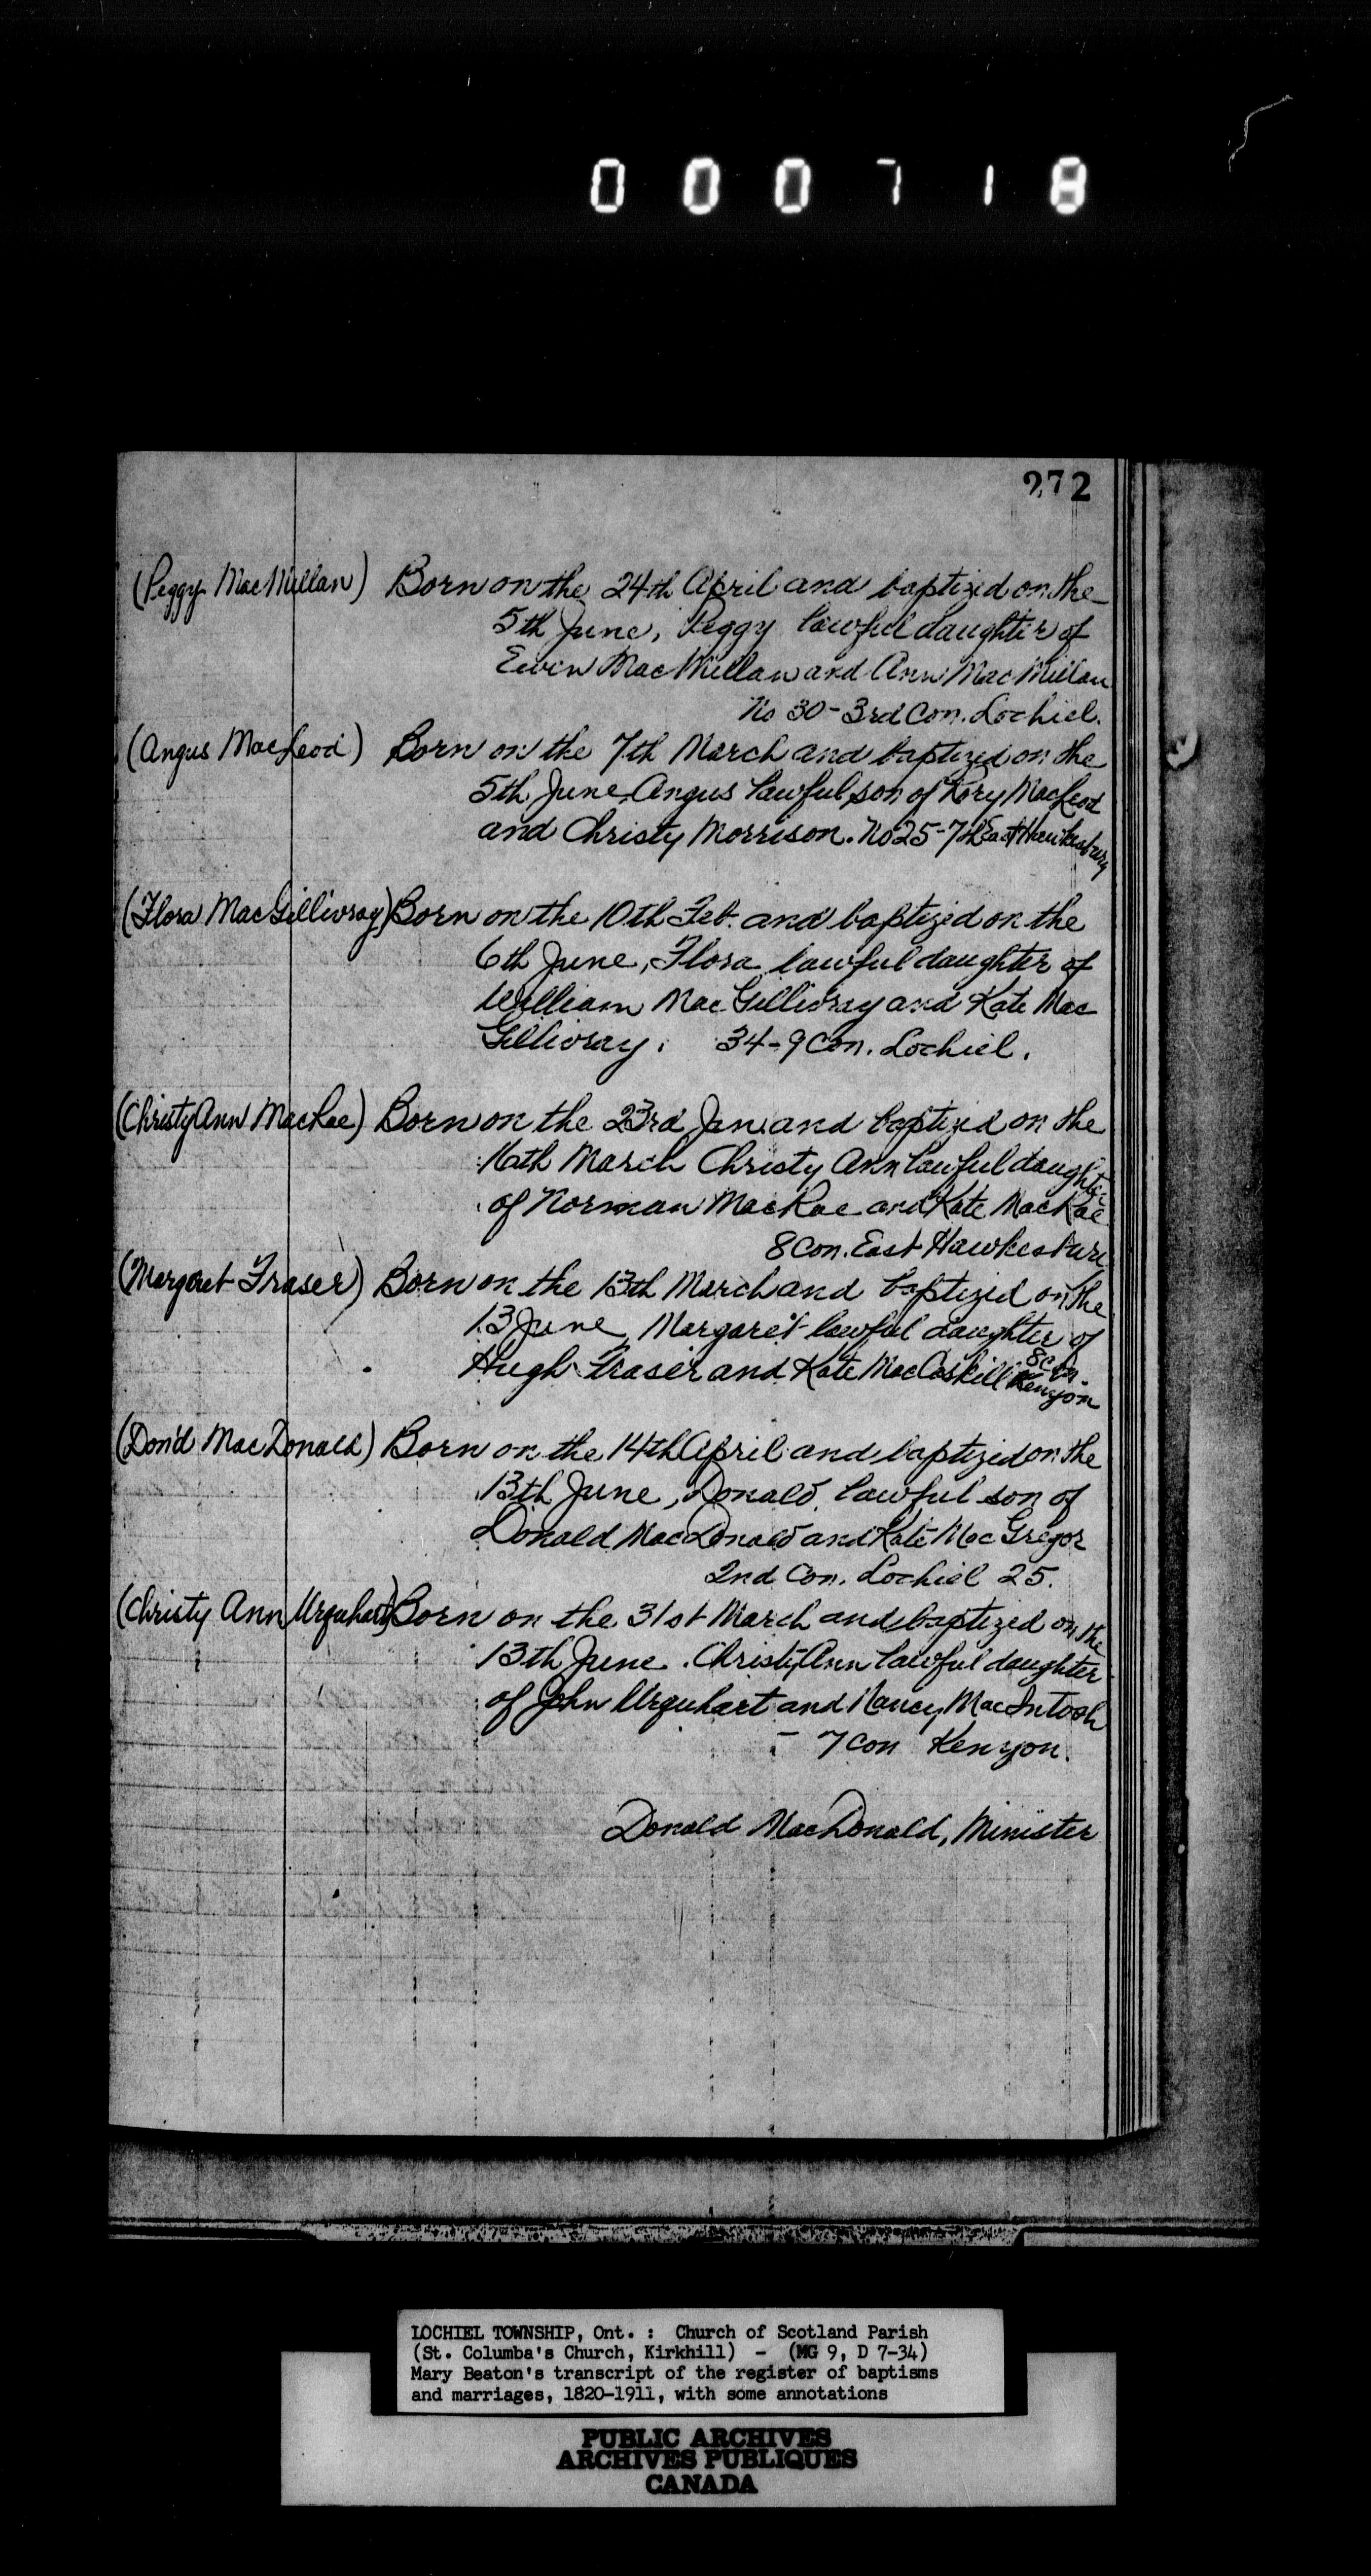 000718
272
(Peggy MacMillan) Born on the 24th April and baptized on the
5th June, Peggy lawful daughter of
Ewen MacMillan and Ann MacMillan
No 30 - 3rd Con. Lochiel.
(Angus MacLeod) Born on the 7th March and baptized on the
5th June, Angus lawful son of Rory MacLeod
and Christy Morrison. No 25 - 7th East Hawkesbury
(Flora MacGillivray) Born on the 10th Feb. and baptized on the
6th June, Flora lawful daughter of
William MacGillivray and Kate Mac
Gillivray. 34 - 9 Con. Lochiel.
(Christy Ann MacRae) Born on the 23rd Jan. and baptized on the
16th March Christy Ann lawful daughter
of Norman MacRae and Kate MacRae
8 Con. East Hawkesbury
(Margaret Fraser) Born on the 13th March and baptized on the
13 June, Margaret lawful daughter of
Hugh Fraser and Kate MacCaskill 8 Con. Kenyon
(Don'd MacDonald) Born on the 14th April and baptized on the
13th June, Donald lawful son of
Donald MacDonald and Kate MacGregor
2nd Con. Lochiel 25.
(Christy Ann Urquhart) Born on the 31st March and baptized on the
13th June. Christy Ann lawful daughter
of John Urquhart and Nancy MacIntosh
- 7 Con Kenyon.
Donald MacDonald, Minister
LOCHIEL TOWNSHIP, Ont. : Church of Scotland Parish
(St. Columba's Church, Kirkhill) - (MG 9, D 7-34)
Mary Beaton's transcript of the register of baptisms
and marriages, 1820-1911, with some annotations
PUBLIC ARCHIVES
ARCHIVES PUBLIQUES
CANADA